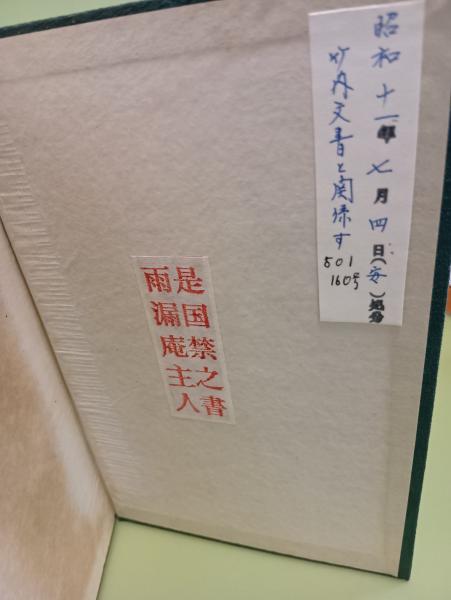 昭和十一年七月四日(安)処分
竹内文書と関係す
501
160号
是国禁之書
雨漏庵主人